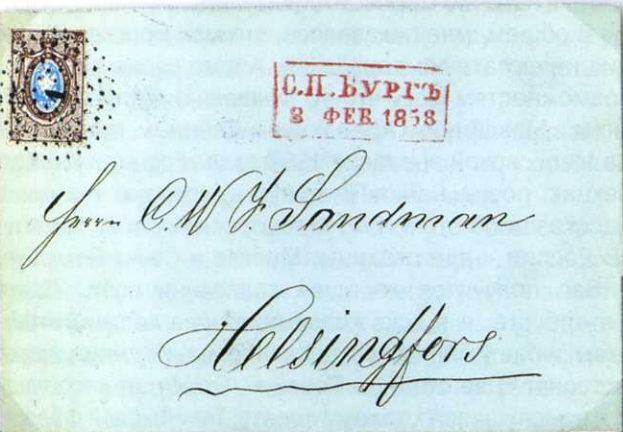 С.П.БУРГЪ
2 ФЕВ. 1858
Herrn C. W. F. Sandman
Helsingfors.